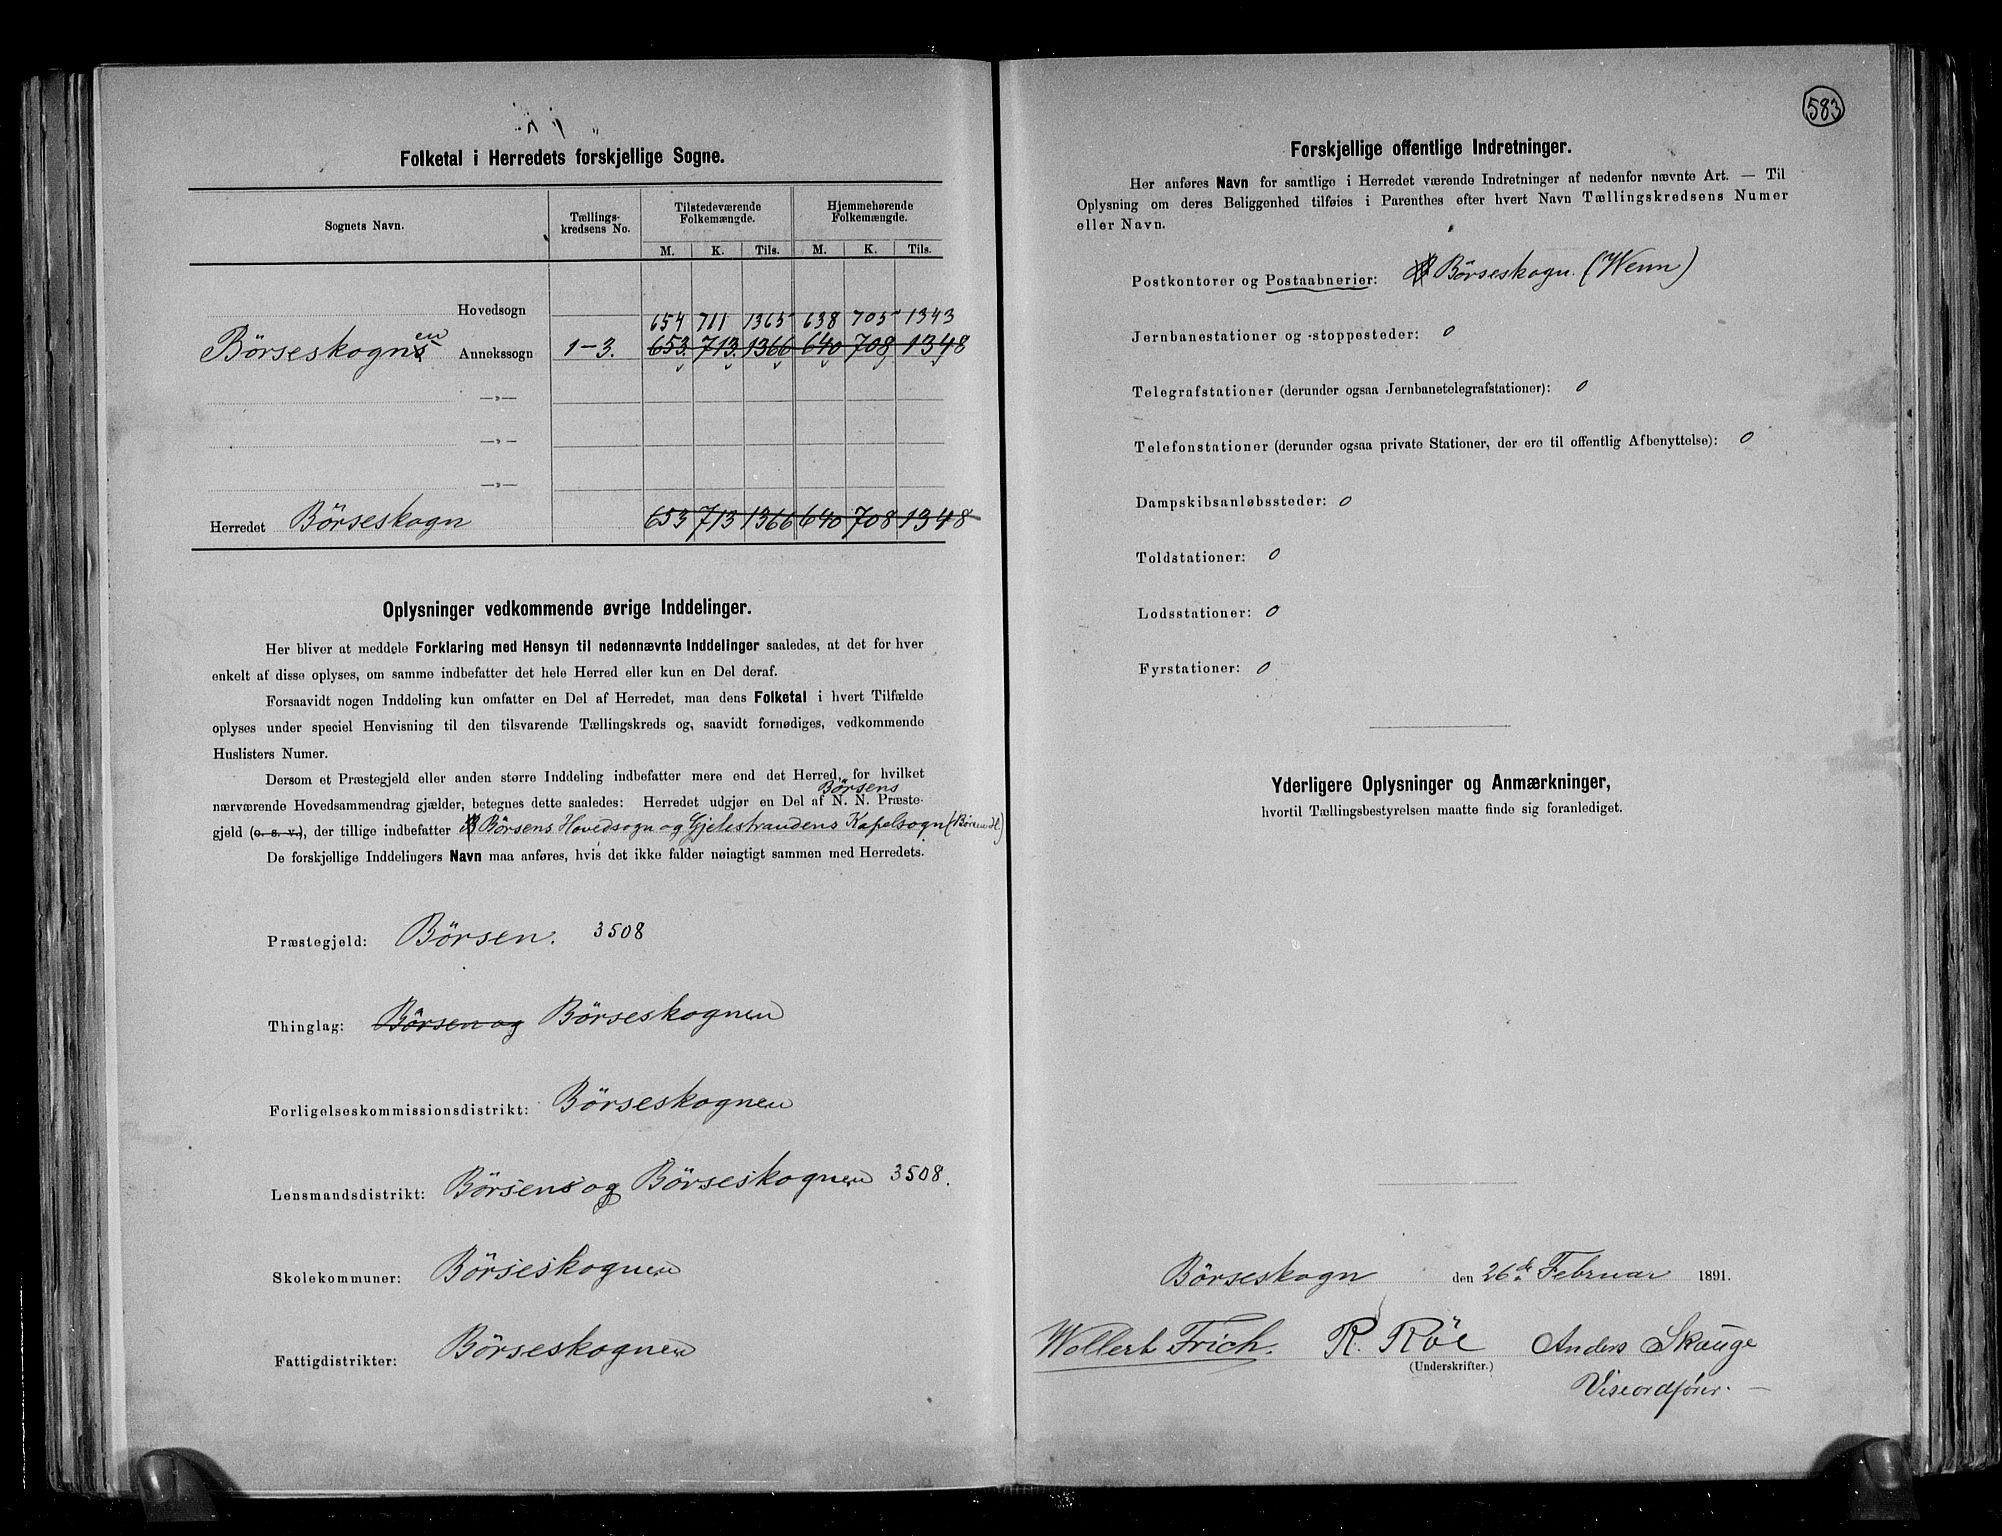 Folketal i Herredets forskjellige Sogne.
Sognets Navn.
Tællings-
kredsens No.
Tilstedeværende
Folkemængde.
Hjemmehørende
Folkemængde.
M. K. Tils. M. K. Tils.
Hovedsogn
654 711 1365 638 705 1343
Börseskognen Annekssogn 1-3. 653. 713. 1366 640 708 1348
—„—
—„—
—„—
Herredet Börseskogn 653 713 1366 640 708 1348
Oplysninger vedkommende øvrige Inddelinger.
Her bliver at meddele Forklaring med Hensyn til nedennævnte Inddelinger saaledes, at det for hver
enkelt af disse oplyses, om samme indbefatter det hele Herred eller kun en Del deraf.
Forsaavidt nogen Inddeling kun omfatter en Del af Herredet, maa dens Folketal i hvert Tilfælde
oplyses under speciel Henvisning til den tilsvarende Tællingskreds og, saavidt fornødiges, vedkommende
Huslisters Numer.
Dersom et Præstegjeld eller anden større Inddeling indbefatter mere end det Herred, for hvilket
Börsens
nærværende Hovedsammendrag gjælder, betegnes dette saaledes: Herredet udgjør en Del af N. N. Præste-
gjeld (o. s. v.), der tillige indbefatter Börsens Hovedsogn og Gjeltstrandens Kapelsogn (Börsen H.)
De forskjellige Inddelingers Navn maa anføres, hvis det ikke falder nøiagtigt sammen med Herredets.
Præstegjeld: Börsen. 3508
Thinglag: Börsen og Börseskognen
Forligelseskommissionsdistrikt: Börseskognen
Lensmandsdistrikt: Börsens og Börseskognen 3508.
Skolekommuner: Börseskognen
Fattigdistrikter: Börseskognen
583
Forskjellige offentlige Indretninger.
Her anføres Navn for samtlige i Herredet værende Indretninger af nedenfor nævnte Art. — Til
Oplysning om deres Beliggenhed tilføies i Parenthes efter hvert Navn Tællingskredsens Numer
eller Navn.
Postkontorer og Postaabnerier: Börseskogn. (Wenn)
Jernbanestationer og -stoppesteder: 0
Telegrafstationer (derunder ogsaa Jernbanetelegrafstationer): 0
Telefonstationer (derunder ogsaa private Stationer, der ere til offentlig Afbenyttelse): 0
Dampskibsanløbssteder: 0
Toldstationer: 0
Lodsstationer: 0
Fyrstationer: 0
Yderligere Oplysninger og Anmærkninger,
hvortil Tællingsbestyrelsen maatte finde sig foranlediget.
Börseskogn den 26de Februar 1891.
Wollert Frich. R. Röe Anders Skauge
(Underskrifter.)
Viseordfører.